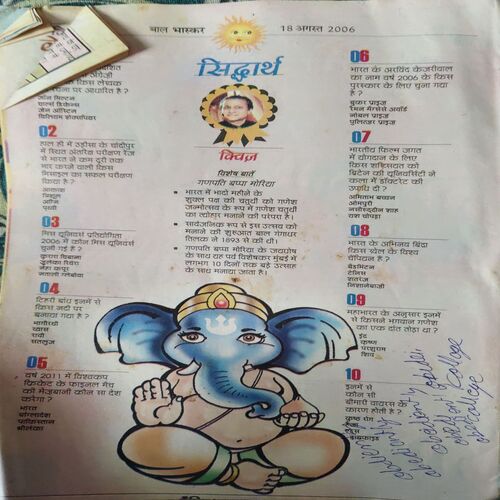 बाल भास्कर
18 अगस्त 2006
सिद्धार्थ
क्विज़
विशेष बातें
गणपति बप्पा मोरिया
• भारत में भादो महीने के
शुक्ल पक्ष की चतुर्थी को गणेश
जन्मोत्सव के रूप में गणेश चतुर्थी
का त्योहार मनाने की परंपरा है।
• सार्वजनिक रूप से इस उत्सव को
मनाने की शुरुआत बाल गंगाधर
तिलक ने 1893 से की थी।
• गणपति बप्पा मोरया के जयघोष
के साथ यह पर्व विशेषकर मुंबई में
लगभग 10 दिनों तक बड़े उत्साह
के साथ मनाया जाता है।
अंग्रेजी
के किस लेखक
रचना पर आधारित है ?
जॉन मिल्टन
चार्ल्स डिकेन्स
जेन ऑस्टिन
विलियम शेक्सपियर
02
हाल ही में उड़ीसा के चांदीपुर
में स्थित अंतरिम परीक्षण रेंज
से भारत ने कम दूरी तक
मार करने वाली किस
मिसाइल का सफल परीक्षण
किया है ?
आकाश
त्रिशूल
अग्नि
पृथ्वी
03
मिस यूनिवर्स प्रतियोगिता
2006 में कौन मिस यूनिवर्स
चुनी गई है ?
कुरारा चिबाना
जुलेका रिवेरा
नेहा कपूर
नताली ग्लेबोवा
04
टिहरी बांध इनमें से
किस नदी पर
बनाया गया है ?
भागीरथी
व्यास
रावी
सतलुज
05
वर्ष 2011 में विश्वकप
क्रिकेट के फाइनल मैच
की मेजबानी कौन सा देश
करेगा ?
भारत
बांग्लादेश
पाकिस्तान
श्रीलंका
06
भारत के अरविंद केजरीवाल
का नाम वर्ष 2006 के किस
पुरस्कार के लिए चुना गया
है ?
बुकर प्राइज
रैमन मैग्सेसे अवॉर्ड
नोबल प्राइज
पुलित्जर प्राइज
07
भारतीय फिल्म जगत
में योगदान के लिए
किस शख्सियत को
ब्रिटेन की यूनिवर्सिटी ने
कला में डॉक्टरेट की
उपाधि दी ?
अमिताभ बच्चन
ओमपुरी
नसीरुद्दीन शाह
यश चोपड़ा
08
भारत के अभिनव बिंद्रा
किस खेल के विश्व
चैंपियन हैं ?
बैडमिंटन
टेनिस
शतरंज
निशानेबाजी
09
महाभारत के अनुसार इनमें
से किसने भगवान गणेश
का एक दांत तोड़ा था ?
इंद्र
कृष्ण
परशुराम
शिव
10
इनमें से
कौन सी
बीमारी वायरस के
कारण होती है ?
कुष्ठ रोग
हैजा
एड्स
टाइफाइड
college